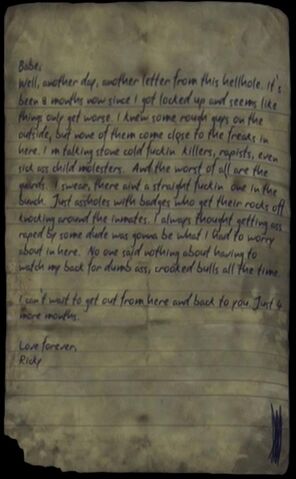 Babe,
Well, another day, another letter from this hellhole. It's
been 8 months now since I got locked up and seems like
things only get worse. I knew some rough guys on the
outside, but none of them come close to the freaks in
here. I'm talking stone cold fuckin' killers, rapists, even
sick ass child molesters. And the worst of all are the
guards. I swear, there aint a straight fuckin' one in the
bunch. Just assholes with badges who get their rocks off
knocking around the inmates. I always thought getting ass
raped by some dude was gonna be what I had to worry
about in here. No one said nothing about having to
watch my back for dumb ass, crooked bulls all the time.
I can't wait to get out from here and back to you. Just 4
more months.
Love forever,
Ricky